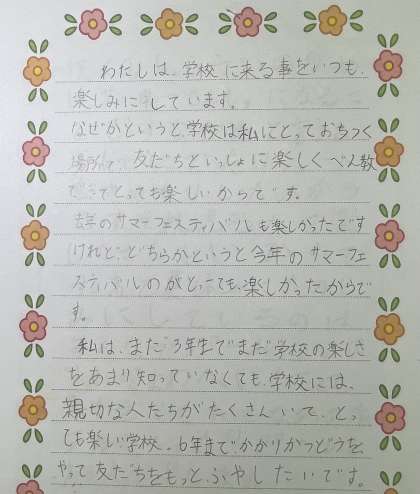 わたしは、学校に来る事をいつも、
楽しみにしています。
なぜかというと、学校は私にとっておちつく
場所で、友だちといっしょに楽しくべん教
できてとっても楽しいからです。
去年のサマーフェスティバルも楽しかったです
けれど、どちらかというと今年のサマーフェ
スティバルのがとっても、楽しかったからで
す。
私は、まだ3年生でまだ学校の楽しさ
をあまり知っていなくても、学校には、
親切な人たちがたくさんいて、とっ
ても楽しい学校。6年まで、かかりかつどうを
やって友だちをもっとふやしたいです。